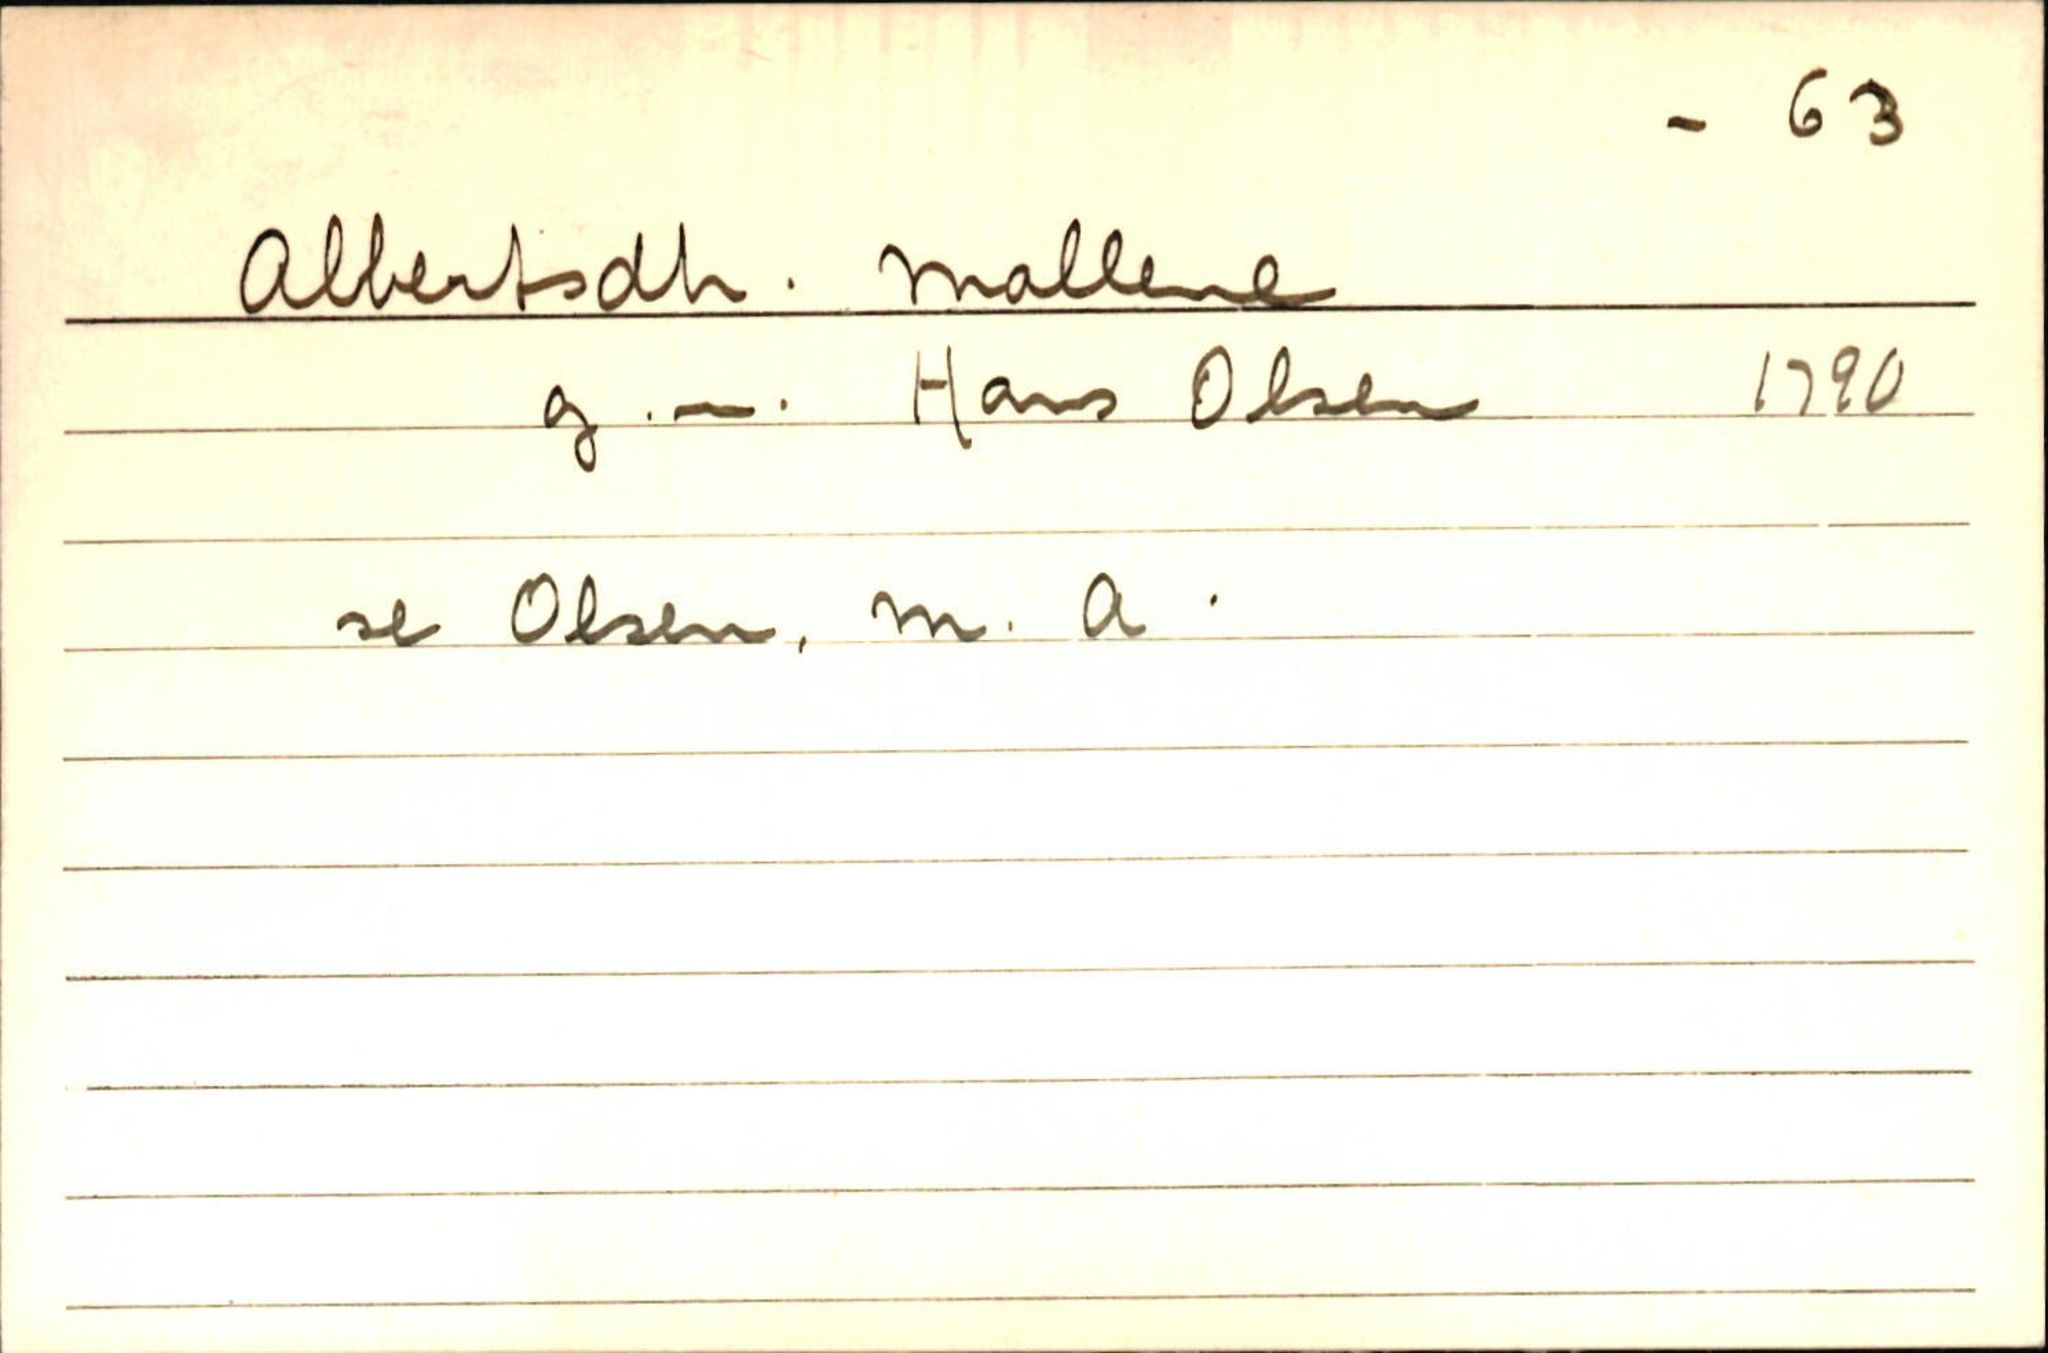 - 63
Albertsdtr. Mallene
g.m. Hans Olsen 1790
se Olsen, M. A.